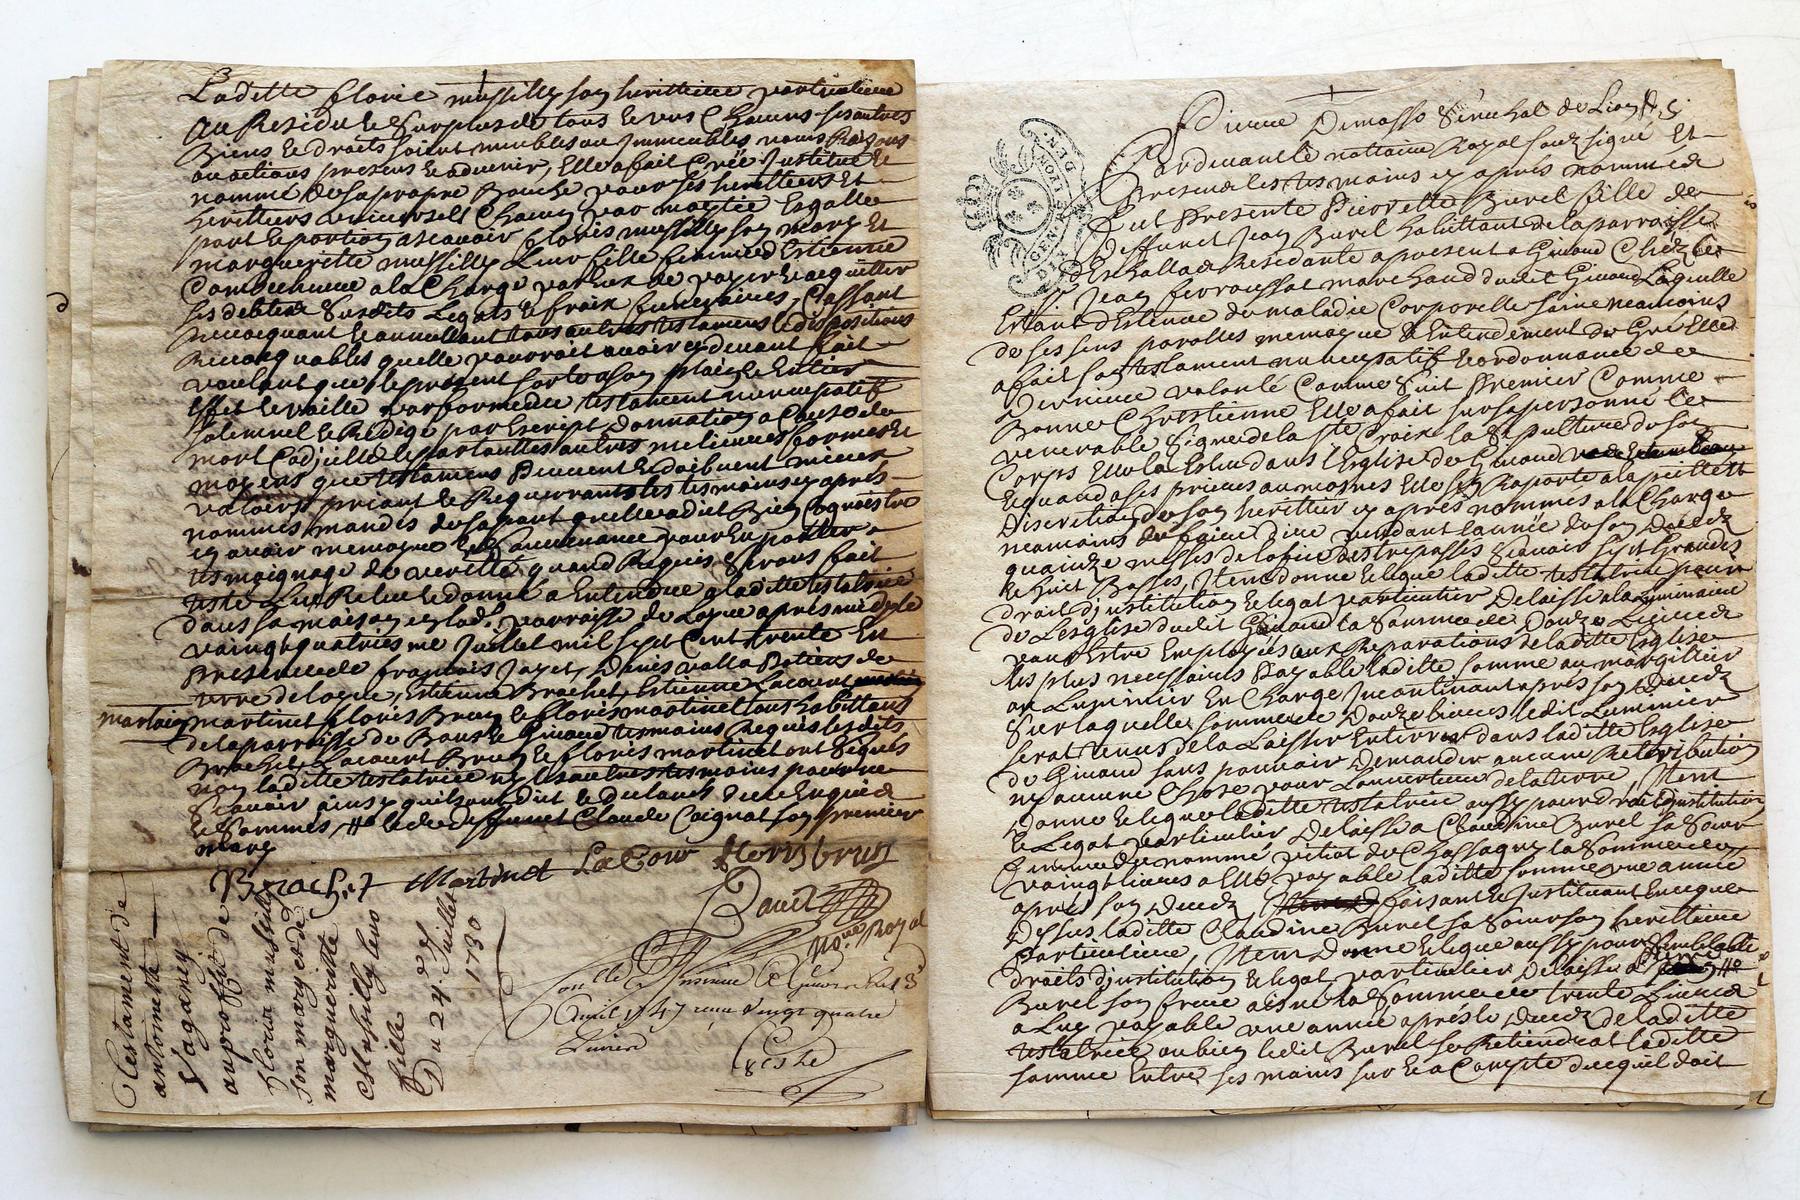 Laditte florie mussilly son heritiere particuliere
Au Residu & surplus de tous & uns Chacuns ses autres
Biens & droits soient meubles ou Immeubles noms Raisons
ou actions presens & advenir, Elle a fait Créé Institué &
nommé de sa propre Bouche pour ses heritiers et
heritiers universels Chacun par moytié Esgalle
part & portion ascavoir floris mussilly son mary et
margueritte mussilly Leur fille femme d'Estienne
a la Charge par Eux de payer & acquitter
ses debtes Susdits Legats & fraix funeraires, Cassant
Revocquant & annullant tous autres testamens & dispositions
Revocquables quelle pourroit avoir cy devant fait
voulant que le present sorte a son plain & Entier
Effet & vaille par forme de testament nuncupatif
solemnel & Redigé par Escript donnation a Cause de
mort Codicille & par touttes autres meilieures formes et
moyens que testamens peuvent & doibvent mieux
valoir, priant & Requerrant les tesmoins cy apres
nommes mandés de sa part quelle a dit Bien Cognoistre
en avoir memoyre & souvenance pour En porter
tesmoignage de veritté quand Requis Seront fait
Leu Releu & donné a Entendre a laditte testatrice
dans sa maison parroisse de apres midy le
vaingt quatriesme Juillet mil sept Cent trente En
presence de françois Jayet, Denis valla Potiers de
terre Estienne Brachet, Estienne Lacourt
martin martinet floris Brun & floris martinet tous habittans
de la parroisse de & Giuaud tesmoins Requis lesdits
Brachet Lacourt Brun & floris martinet ont Signés
non laditte testatrice ny les autres tesmoins pour ne
Scavoir ainsy quils ont dit & declaré de ce Enquis
& Sommes, deffunct Claude Coignat son premier
mary
Brachet Martinet La Cour floris brun
No.re Royal
Avril 1747 vingt quatre
Livres
Testament de
anthoinette
Vaganey
au proffit de
floris mussilly
son mary et de
margueritte
Mussilly leur
fille
Du 24.e Juillet
1730
Pardevant le nottaire Royal souz signé Et
Presence les tesmoins cy après nommes
Fut Presente Pierrette Burel fille de
deffunct Jean Burel habittant de la parroisse
Residante a present a Giuaud Chez le
Sr Jean ferroussat marchand dudit Giuaud Laquelle
Estant Detenue de maladie Corporelle saine neamoins
de ses sens parolles memoyre & Entendement de Gré Elle
a fait son testament nuncupatif & ordonnance de
Derniere volonté Comme Suit Premier Comme
Bonne Chrestienne Elle a fait sur sa personne le
venerable Signe de la Ste Croix la Sepulture de son
Corps Elle la Esleu dans l'Eglise de Giuaud
& quand a ses prieres aumosnes Elle s'en Raporte a la pieté &
Discretion de son heritier cy apres nommes a la Charge
neamoins de faire Dire pendant l'année de son Deceds
quainze messes de l'office des trepassés Scavoir sept Grandes
& huit Basses, Item donne & legue laditte testatrice pour
droit d'institution & legat particulier Delaisse a la Luminaire
de L'esglise dudit Giuaud la Somme de Douze Livres
pour Estre Employés aux Reparations de laditte Esglise
les plus necessaires Payable laditte somme au margillier
ou Luminier En Charge Incontinant apres son Deceds
Sur laquelle somme de Douze livres ledit Luminier
serat tenus de la Laisser Enterrer dans laditte Esglise
de Giuaud sans pouvoir Demander aucune Retribution
ny aucune Chose pour Louverture de la terre, Item
Donne & legue laditte testatrice aussy pour droit d'institution
& Legat particulier Delaisse a Claudine Burel sa Sœur
femme du nommé pitiot de Chassagny la Somme de
vaingt livres a Elle payable laditte somme une année
apres son Deceds, faisant & Instituant En ce que
Dessus laditte Claudine Burel sa Sœur son heritiere
Particuliere, Item Donne & legue aussy pour Semblable
droit d'institution & legat particulier Delaisse a Pierre
Burel son frere aisné la Somme de trente Livres
a Luy payable une année apres le Deceds de laditte
testatrice, ou bien ledit Burel se Retiendrat laditte
somme Entre ses mains sur & a Compte de ce quil doit